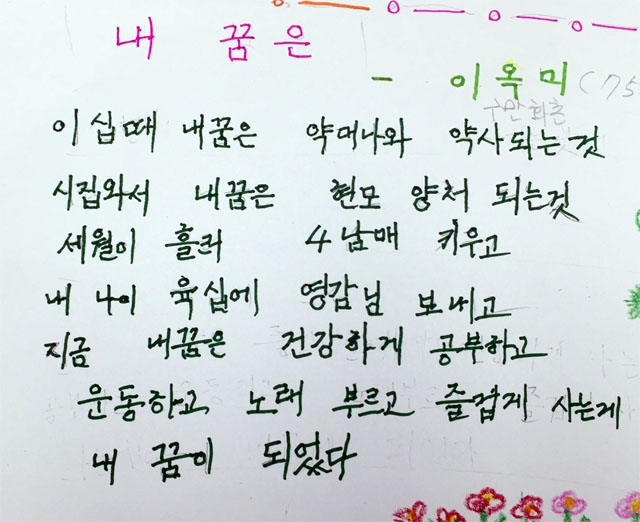 내 꿈은
- 이옥미 (75
수만회촌
이십때 내꿈은 약대나와 약사되는것
시집와서 내꿈은 현모 양처 되는것
세월이 흘러 4남매 키우고
내 나이 육십에 영감님 보내고
지금 내꿈은 건강하게 공부하고
운동하고 노래 부르고 즐겁게 사는게
내 꿈이 되었다